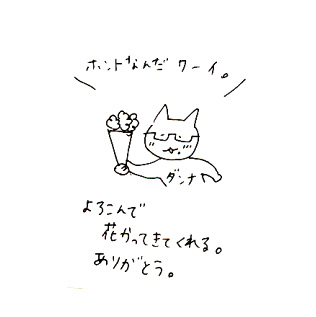 ホントなんだワーイ。
ダンナ
よろこんで
花かってきてくれる。
ありがとう。